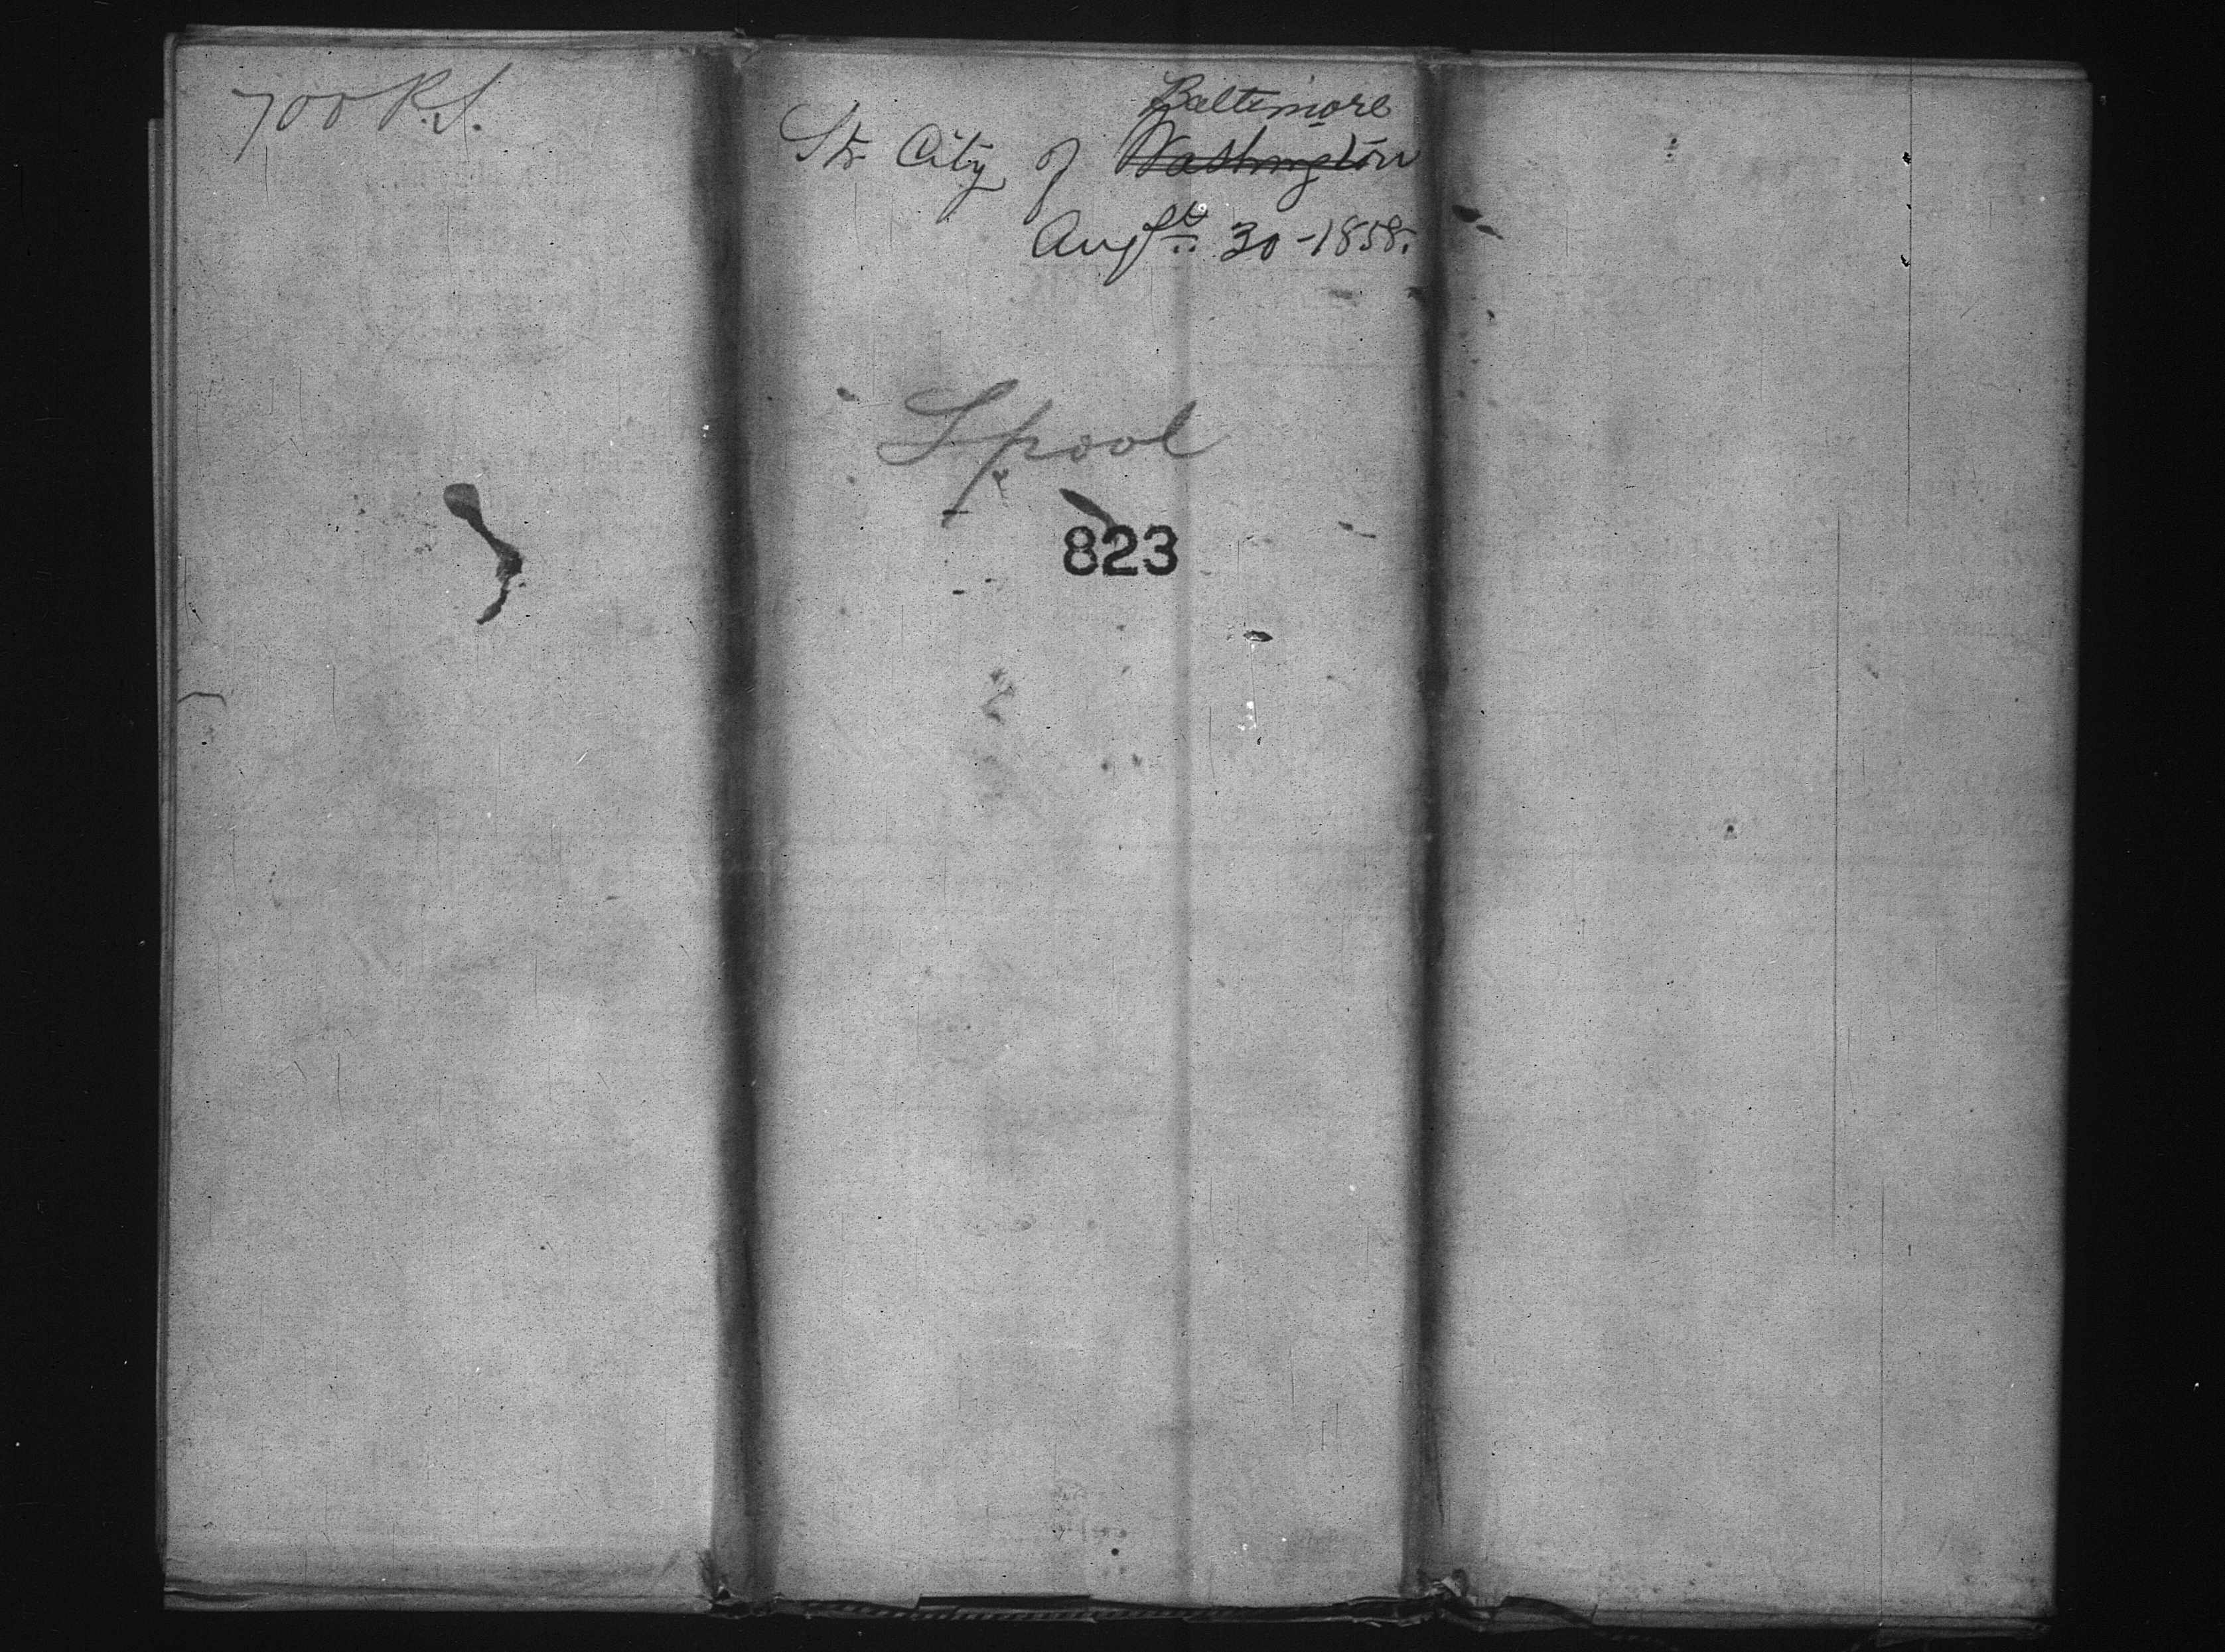 700 P.S.
Baltimore
Str City of Washington
Augst 30 - 1858.
Lpool
823